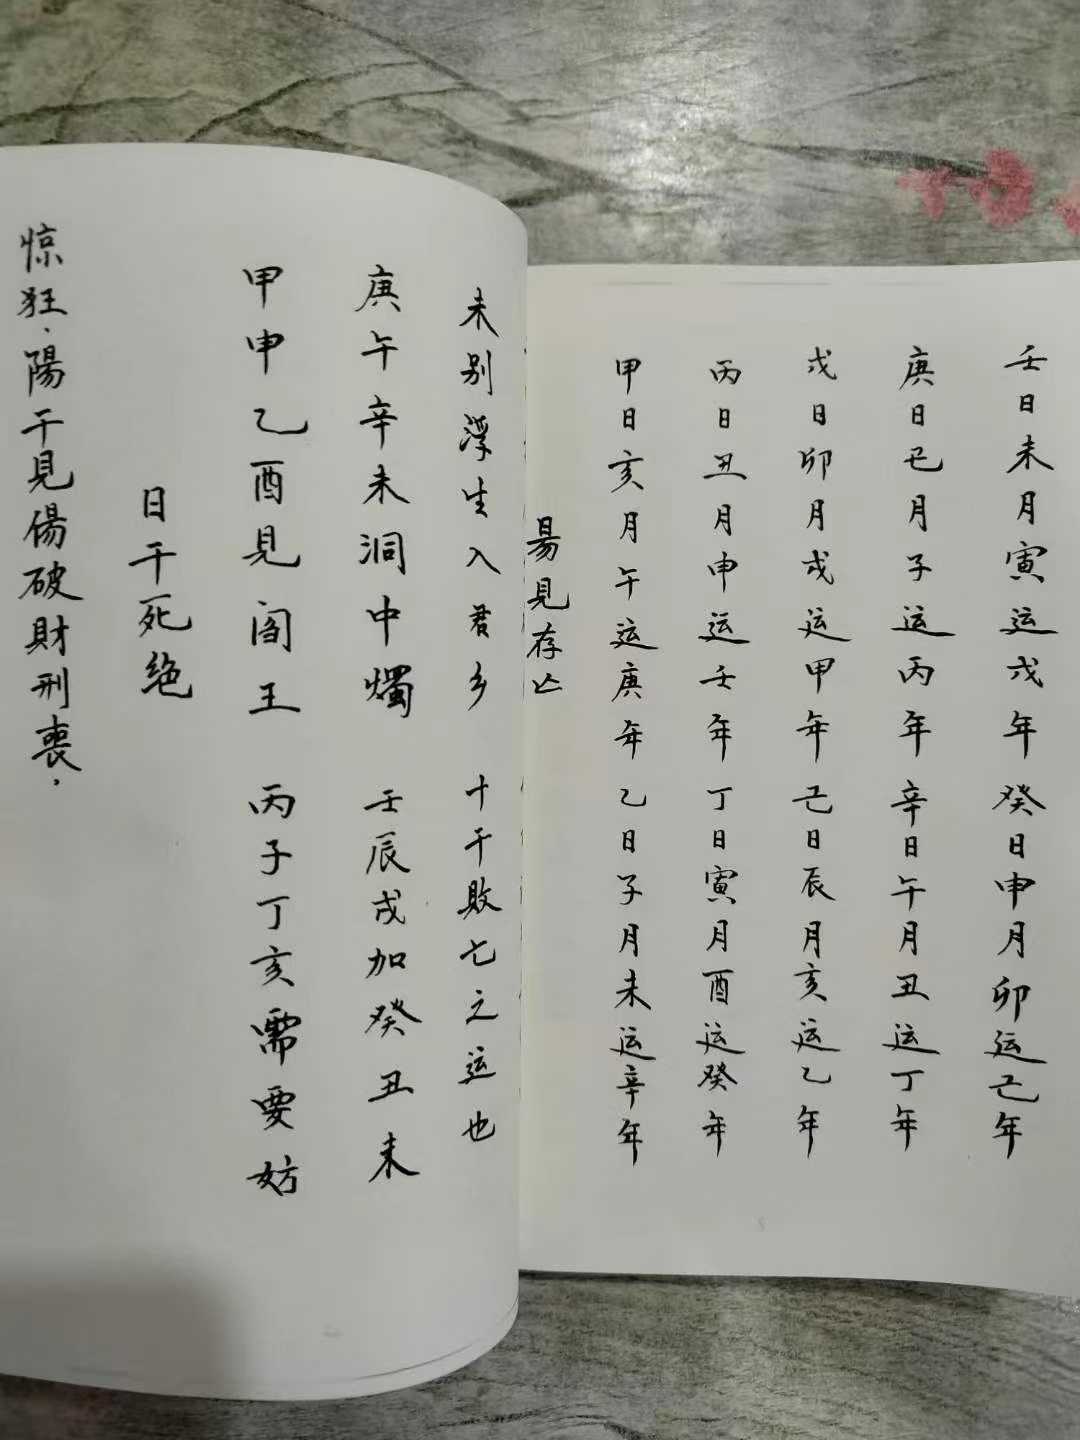 壬日未月寅运戊年 癸日申月卯运己年
庚日巳月子运丙年 辛日午月丑运丁年
戊日卯月戌运甲年 己日辰月亥运乙年
丙日丑月申运壬年 丁日寅月酉运癸年
甲日亥月午运庚年 乙日子月未运辛年
昜見存亡
未别浮生入君乡 十干敗亡之运也
庚午辛未洞中燭 壬辰戌加癸丑未
甲申乙酉見阎王 丙子丁亥需要妨
日干死绝
惊狂、陽干見傷破財刑喪。